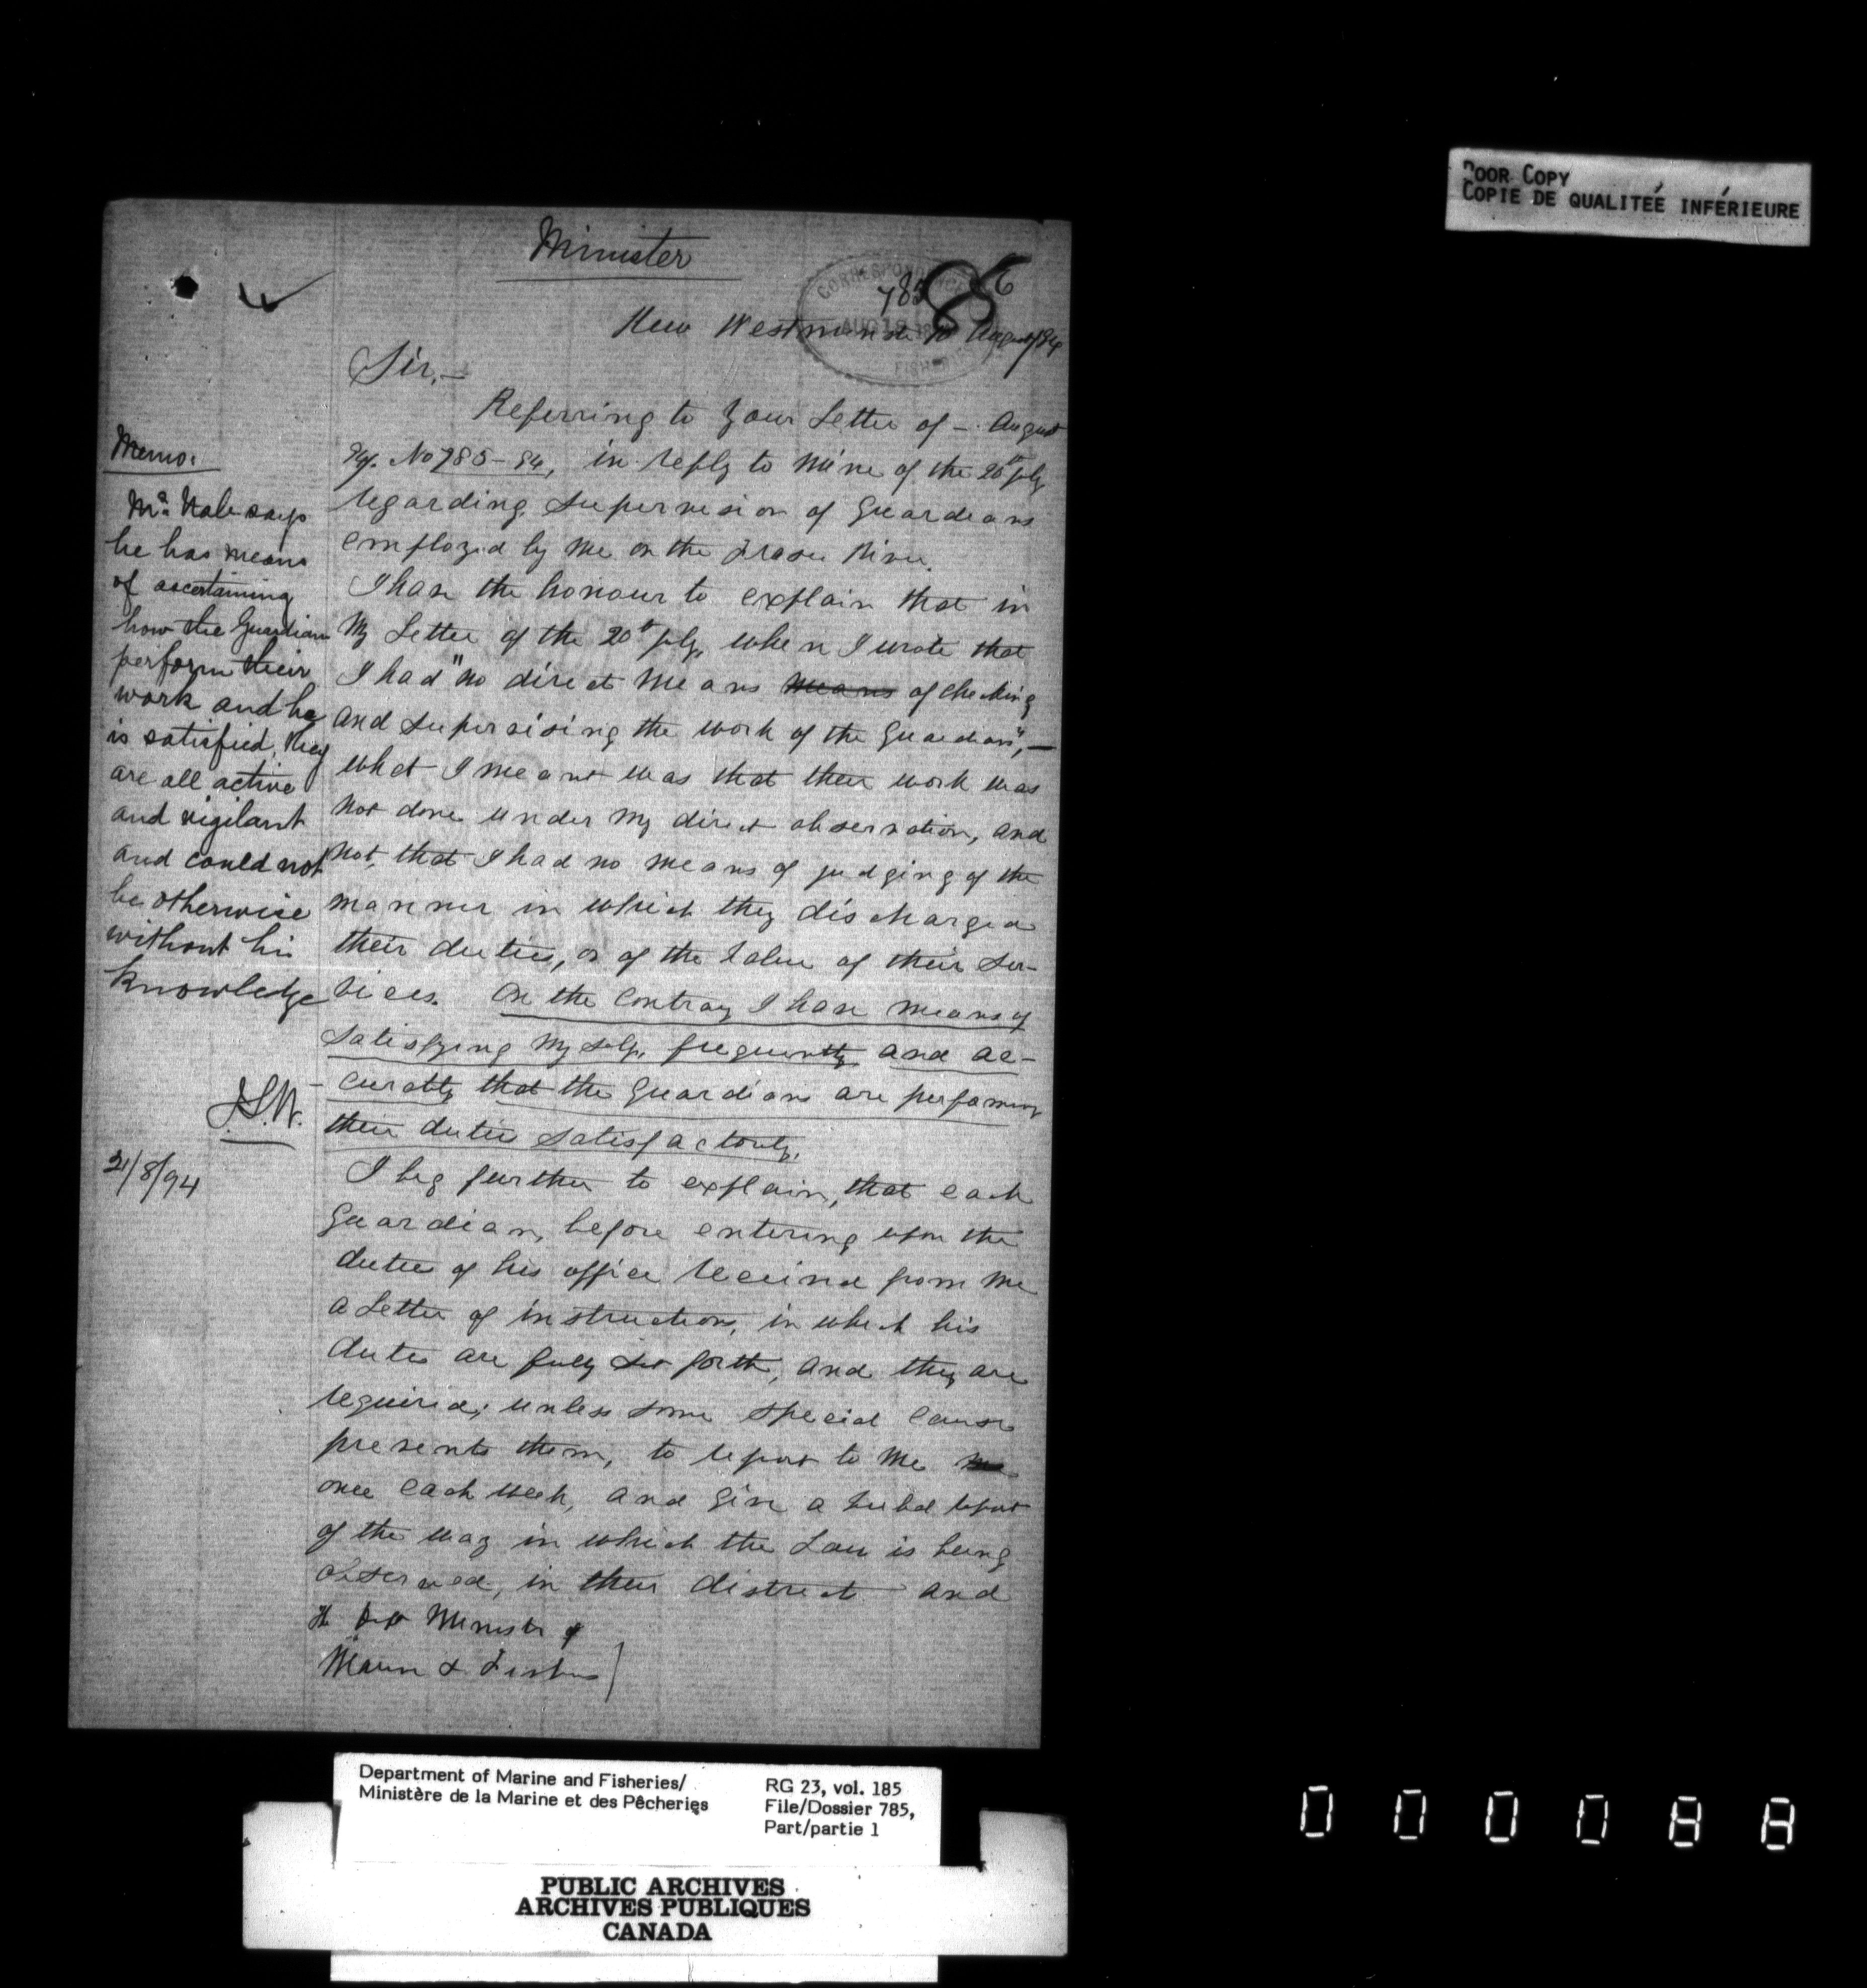 POOR COPY
COPIE DE QUALITÉE INFÉRIEURE
Minister
785
86
CORRESPONDENCE
AUG 18
FISHERIES
New Westminster 10 August/94
Sir,—
Referring to your Letter of – August
No 785–94, in reply to mine of the 20th July
regarding supervision of Guardians
employed by me on the Fraser River.
I have the honour to explain that in
My Letter of the 20th July, when I wrote that
I had "no direct means means of checking
and supervising the work of the Guardians",—
what I meant was that their work was
not done under my direct observation, and
not, that I had no means of judging of the
manner in which they discharged
their duties, or of the value of their ser-
vices. On the contrary I have means of
satisfying myself, frequently and ac-
curately that the Guardians are performing
their duties satisfactorily.
I beg further to explain, that each
Guardian, before entering upon the
duties of his office received from me
a Letter of instructions, in which his
duties are fully set forth, and they are
required, unless some special cause
prevents them, to report to me me
once each week, and give a verbal report
of the way in which the Law is being
observed, in their district and
Minister of
Marine & Fisheries
Memo.
Mr. Nale says
he has means
of ascertaining
how the Guardians
perform their
work and he
is satisfied. They
are all active
and vigilant
and could not
be otherwise
without his
knowledge
J.S.W.
21/8/94
Department of Marine and Fisheries/
Ministère de la Marine et des Pêcheries
RG 23, vol. 185
File/Dossier 785,
Part/partie 1
PUBLIC ARCHIVES
ARCHIVES PUBLIQUES
CANADA
000088